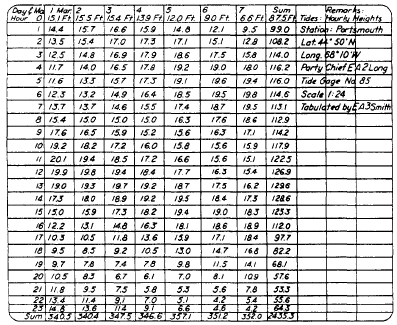 Day & Mar 1 Mar 2 3 4 5 6 7 Sum Remarks:
Hour 0 15.1 Ft. 15.5 Ft. 15.4 Ft. 13.9 Ft. 12.0 Ft. 9.0 Ft. 6.6 Ft. 87.5 Ft. Tides: Hourly Heights
1 14.4 15.7 16.6 15.9 14.8 12.1 9.5 99.0 Station: Portsmouth
2 13.5 15.4 17.0 17.3 17.1 15.1 12.8 108.2 Lat. 44° 50' N
3 12.5 14.8 16.9 17.9 18.6 17.5 15.8 114.0 Long. 68° 10' W
4 11.7 14.0 16.5 17.8 19.2 19.0 18.0 116.2 Party Chief EA2 Long
5 11.6 13.5 15.7 17.3 19.1 19.6 19.4 116.0 Tide Gage No. 85
6 12.3 13.2 14.9 16.4 18.5 19.5 19.8 114.6 Scale 1:24
7 13.7 13.7 14.6 15.5 17.4 18.7 19.5 113.1 Tabulated by EA3 Smith
8 15.4 15.0 15.0 15.0 16.3 17.6 18.6 112.9
9 17.6 16.5 15.9 15.2 15.6 16.3 17.1 114.2
10 19.2 18.2 17.2 16.0 15.8 15.6 15.9 117.9
11 20.1 19.4 18.5 17.2 16.6 15.6 15.1 122.5
12 19.9 19.8 19.4 18.4 17.7 16.3 15.4 126.9
13 19.0 19.3 19.7 19.2 18.7 17.5 16.2 129.6
14 17.3 18.0 18.9 19.2 19.5 18.4 17.3 128.6
15 15.0 15.9 17.3 18.2 19.4 19.0 18.3 123.3
16 12.2 13.1 14.8 16.3 18.1 18.6 18.9 112.0
17 10.3 10.5 11.8 13.6 15.9 17.1 18.4 97.7
18 9.5 8.5 9.2 10.5 13.0 14.7 16.8 82.2
19 9.7 7.8 7.4 7.8 9.8 11.5 14.1 68.1
20 10.5 8.3 6.7 6.1 7.0 8.1 10.9 57.6
21 11.8 9.5 7.5 5.8 5.3 5.6 7.8 53.3
22 13.4 11.4 9.1 7.0 5.1 4.2 5.4 55.6
23 14.8 13.6 11.4 9.1 6.6 4.6 4.2 64.3
Sum 340.5 340.4 347.5 346.6 357.1 351.2 352.0 2435.3